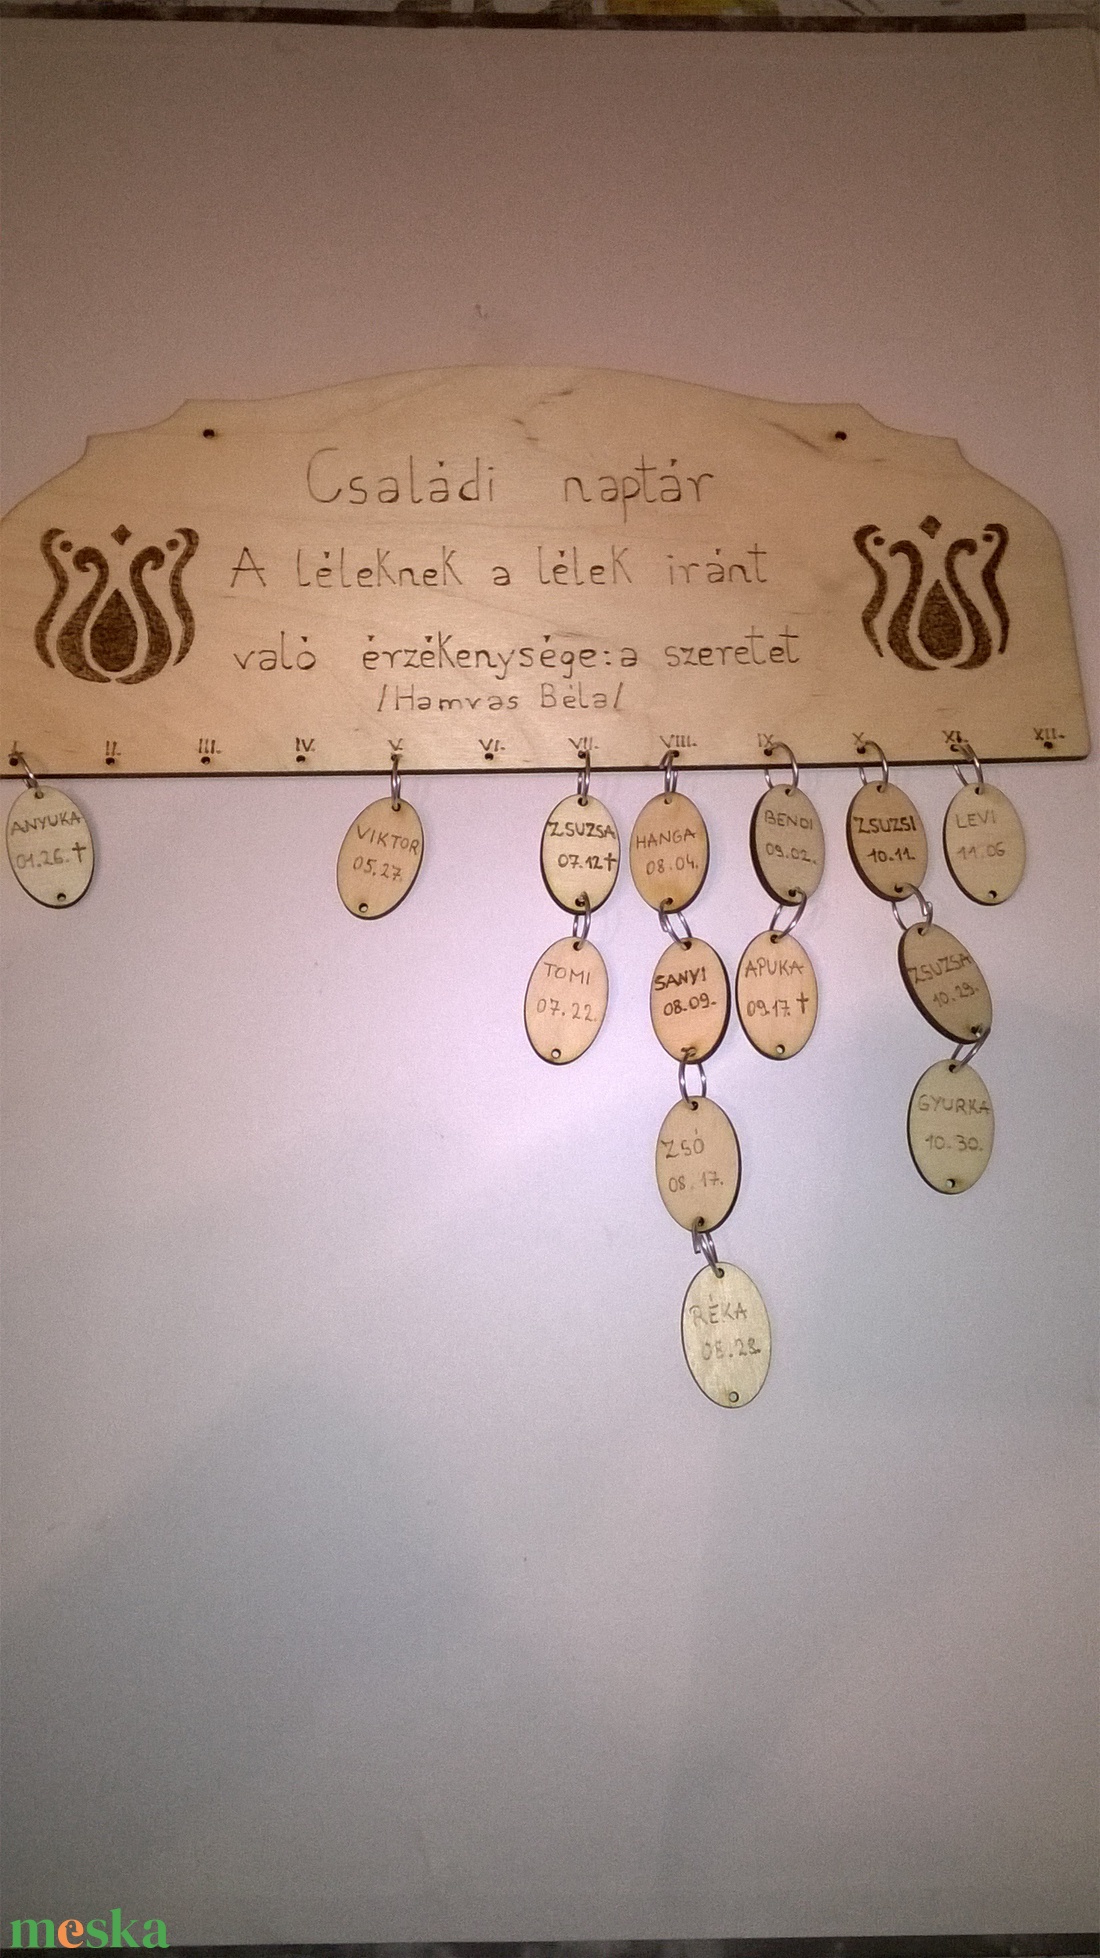 Családi naptár
A léleknek a lélek iránt
való érzékenysége: a szeretet
/Hamvas Béla/
I. II. III. IV. V. VI. VII. VIII. IX. X. XI. XII.
ANYUKA
01.26.†
VIKTOR
05.27.
ZSUZSA
07.12†
TOMI
07.22.
HANGA
08.04.
SANYI
08.09.
ZSÓ
08.17.
RÉKA
08.28.
BENDI
09.02.
APUKA
09.17.†
ZSUZSI
10.11.
ZSUZSA
10.29.
GYURKA
10.30.
LEVI
11.06
meska